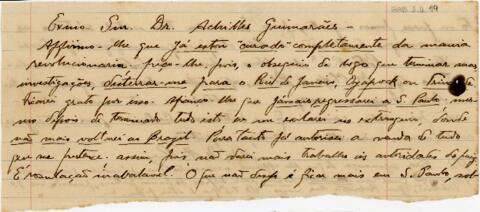 Exmo Snr. Dr. Achilles Guimarães -
Affirmo-lhe que já estou "curado" completamente da mania
revolucionaria. Peço-lhe, pois, o obsequio de logo que terminar suas
investigações, desterrar-me para o Rio de Janeiro, Oyapock ou
ficarei grato por isso. lhe que jamais regressarei a S. Paulo, mes-
mo depois de terminado tudo isto. no extrangeiro, donde
não mais voltarei ao Brazil. Para tanto já autorisei a venda de tudo
que me pertence, assim, pois, não darei mais trabalho ás autoridades do paiz.
É resolução inabalavel. O que não desejo é ficar mais em S. Paulo, sob